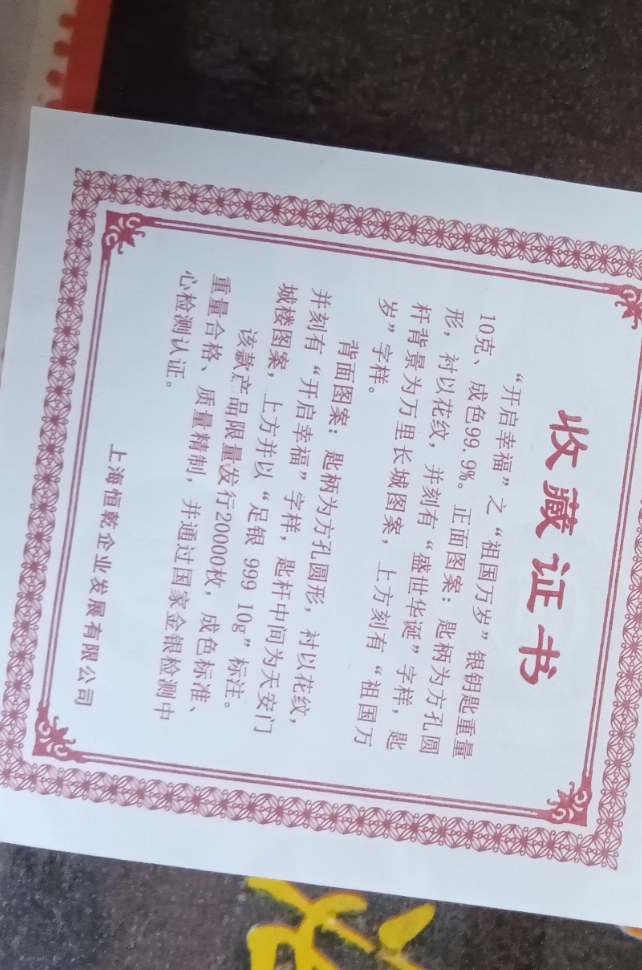 收藏证书
“开启幸福”之“祖国万岁”银钥匙重量
10克、成色99.9%。正面图案：匙柄为方孔圆
形，衬以花纹，并刻有“盛世华诞”字样，匙
杆背景为万里长城图案，上方刻有“祖国万
岁”字样。
背面图案：匙柄为方孔圆形，衬以花纹，
并刻有“开启幸福”字样，匙杆中间为天安门
城楼图案，上方并以“足银 999 10g”标注。
该款产品限量发行20000枚，成色标准、
重量合格、质量精制，并通过国家金银检测中
心检测认证。
上海恒乾企业发展有限公司